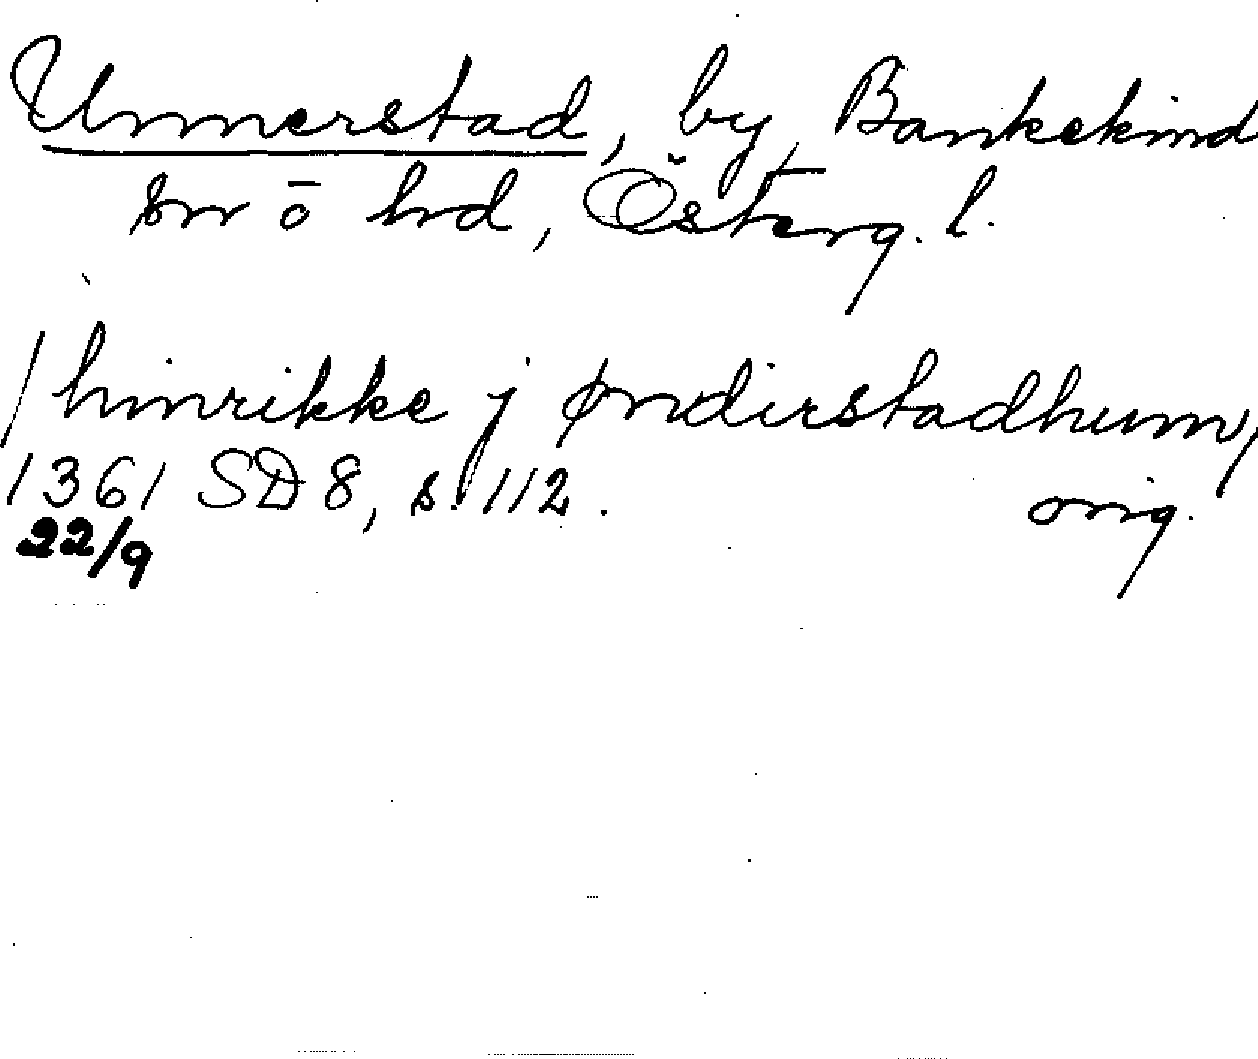 Unnerstad, by, Bankekind
sn o hd, Österg. l.
/hinrikke j øndirstadhum,
1361 SD 8, s. 112. orig.
22/9